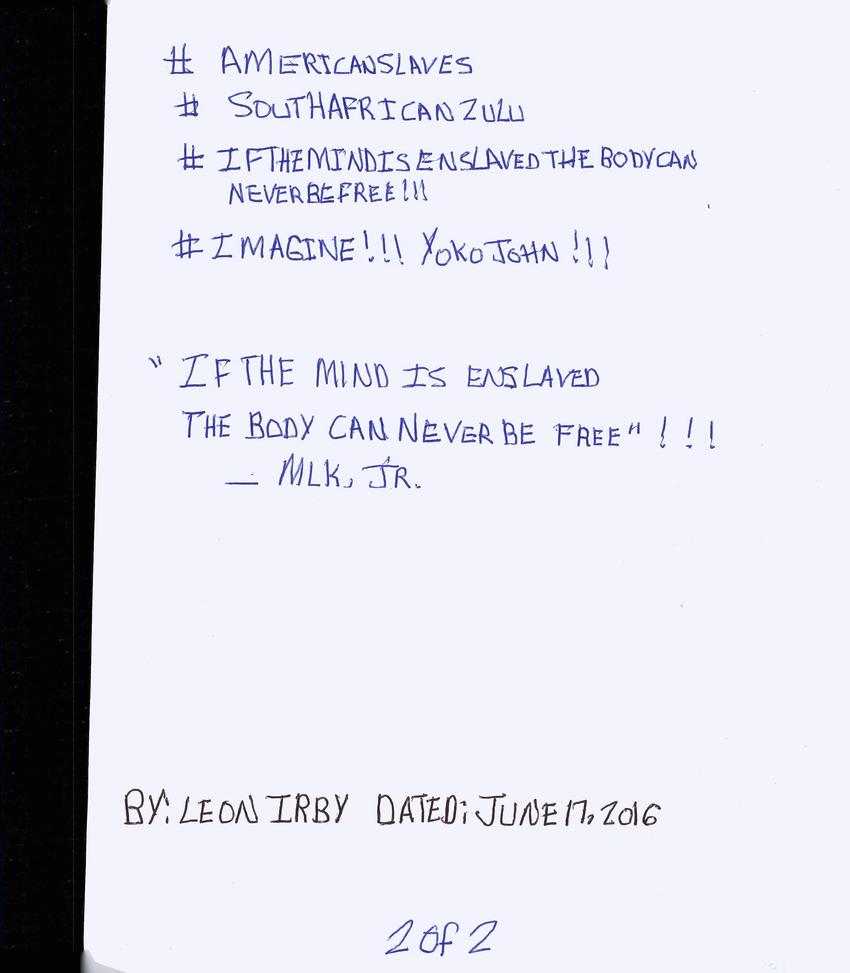 # AMERICANSLAVES
# SOUTHAFRICANZULU
# IFTHEMINDISENSLAVEDTHEBODYCAN
NEVERBEFREE!!!
# IMAGINE!!! YOKOJOHN!!!
"IF THE MIND IS ENSLAVED
THE BODY CAN NEVER BE FREE"!!!
— MLK, JR.
BY: LEON IRBY DATED: JUNE 17, 2016
2 of 2